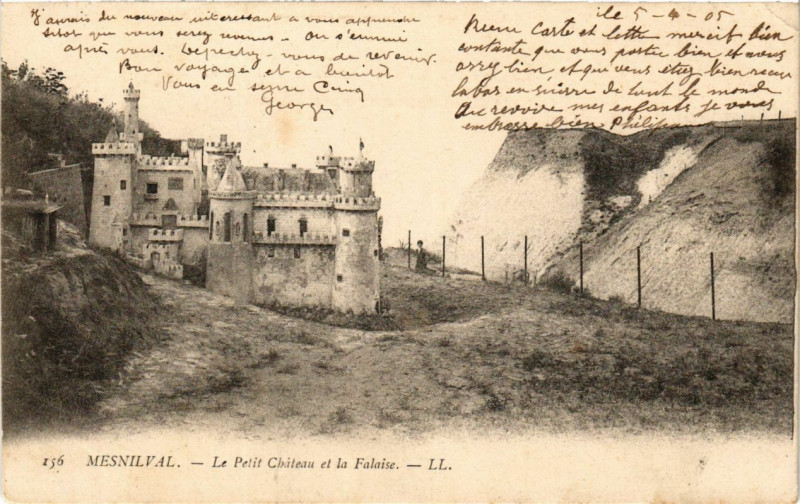 J'aurais du nouveau interessant a vous apprendre
sitot que vous serez revenus — On s'ennui
après vous. Depechez-vous de revenir.
Bon voyage et a bientôt
Vous en serre Cinq
Georges
le 5-4-05
Recue Carte et lettre merci bien
contante que vous portie bien et vous
arrij bien et que vous étiez bien recu
labas en de tout le monde
Au revoire mes enfants je vous
embrasse bien Philip
156 MESNILVAL. — Le Petit Château et la Falaise. — LL.